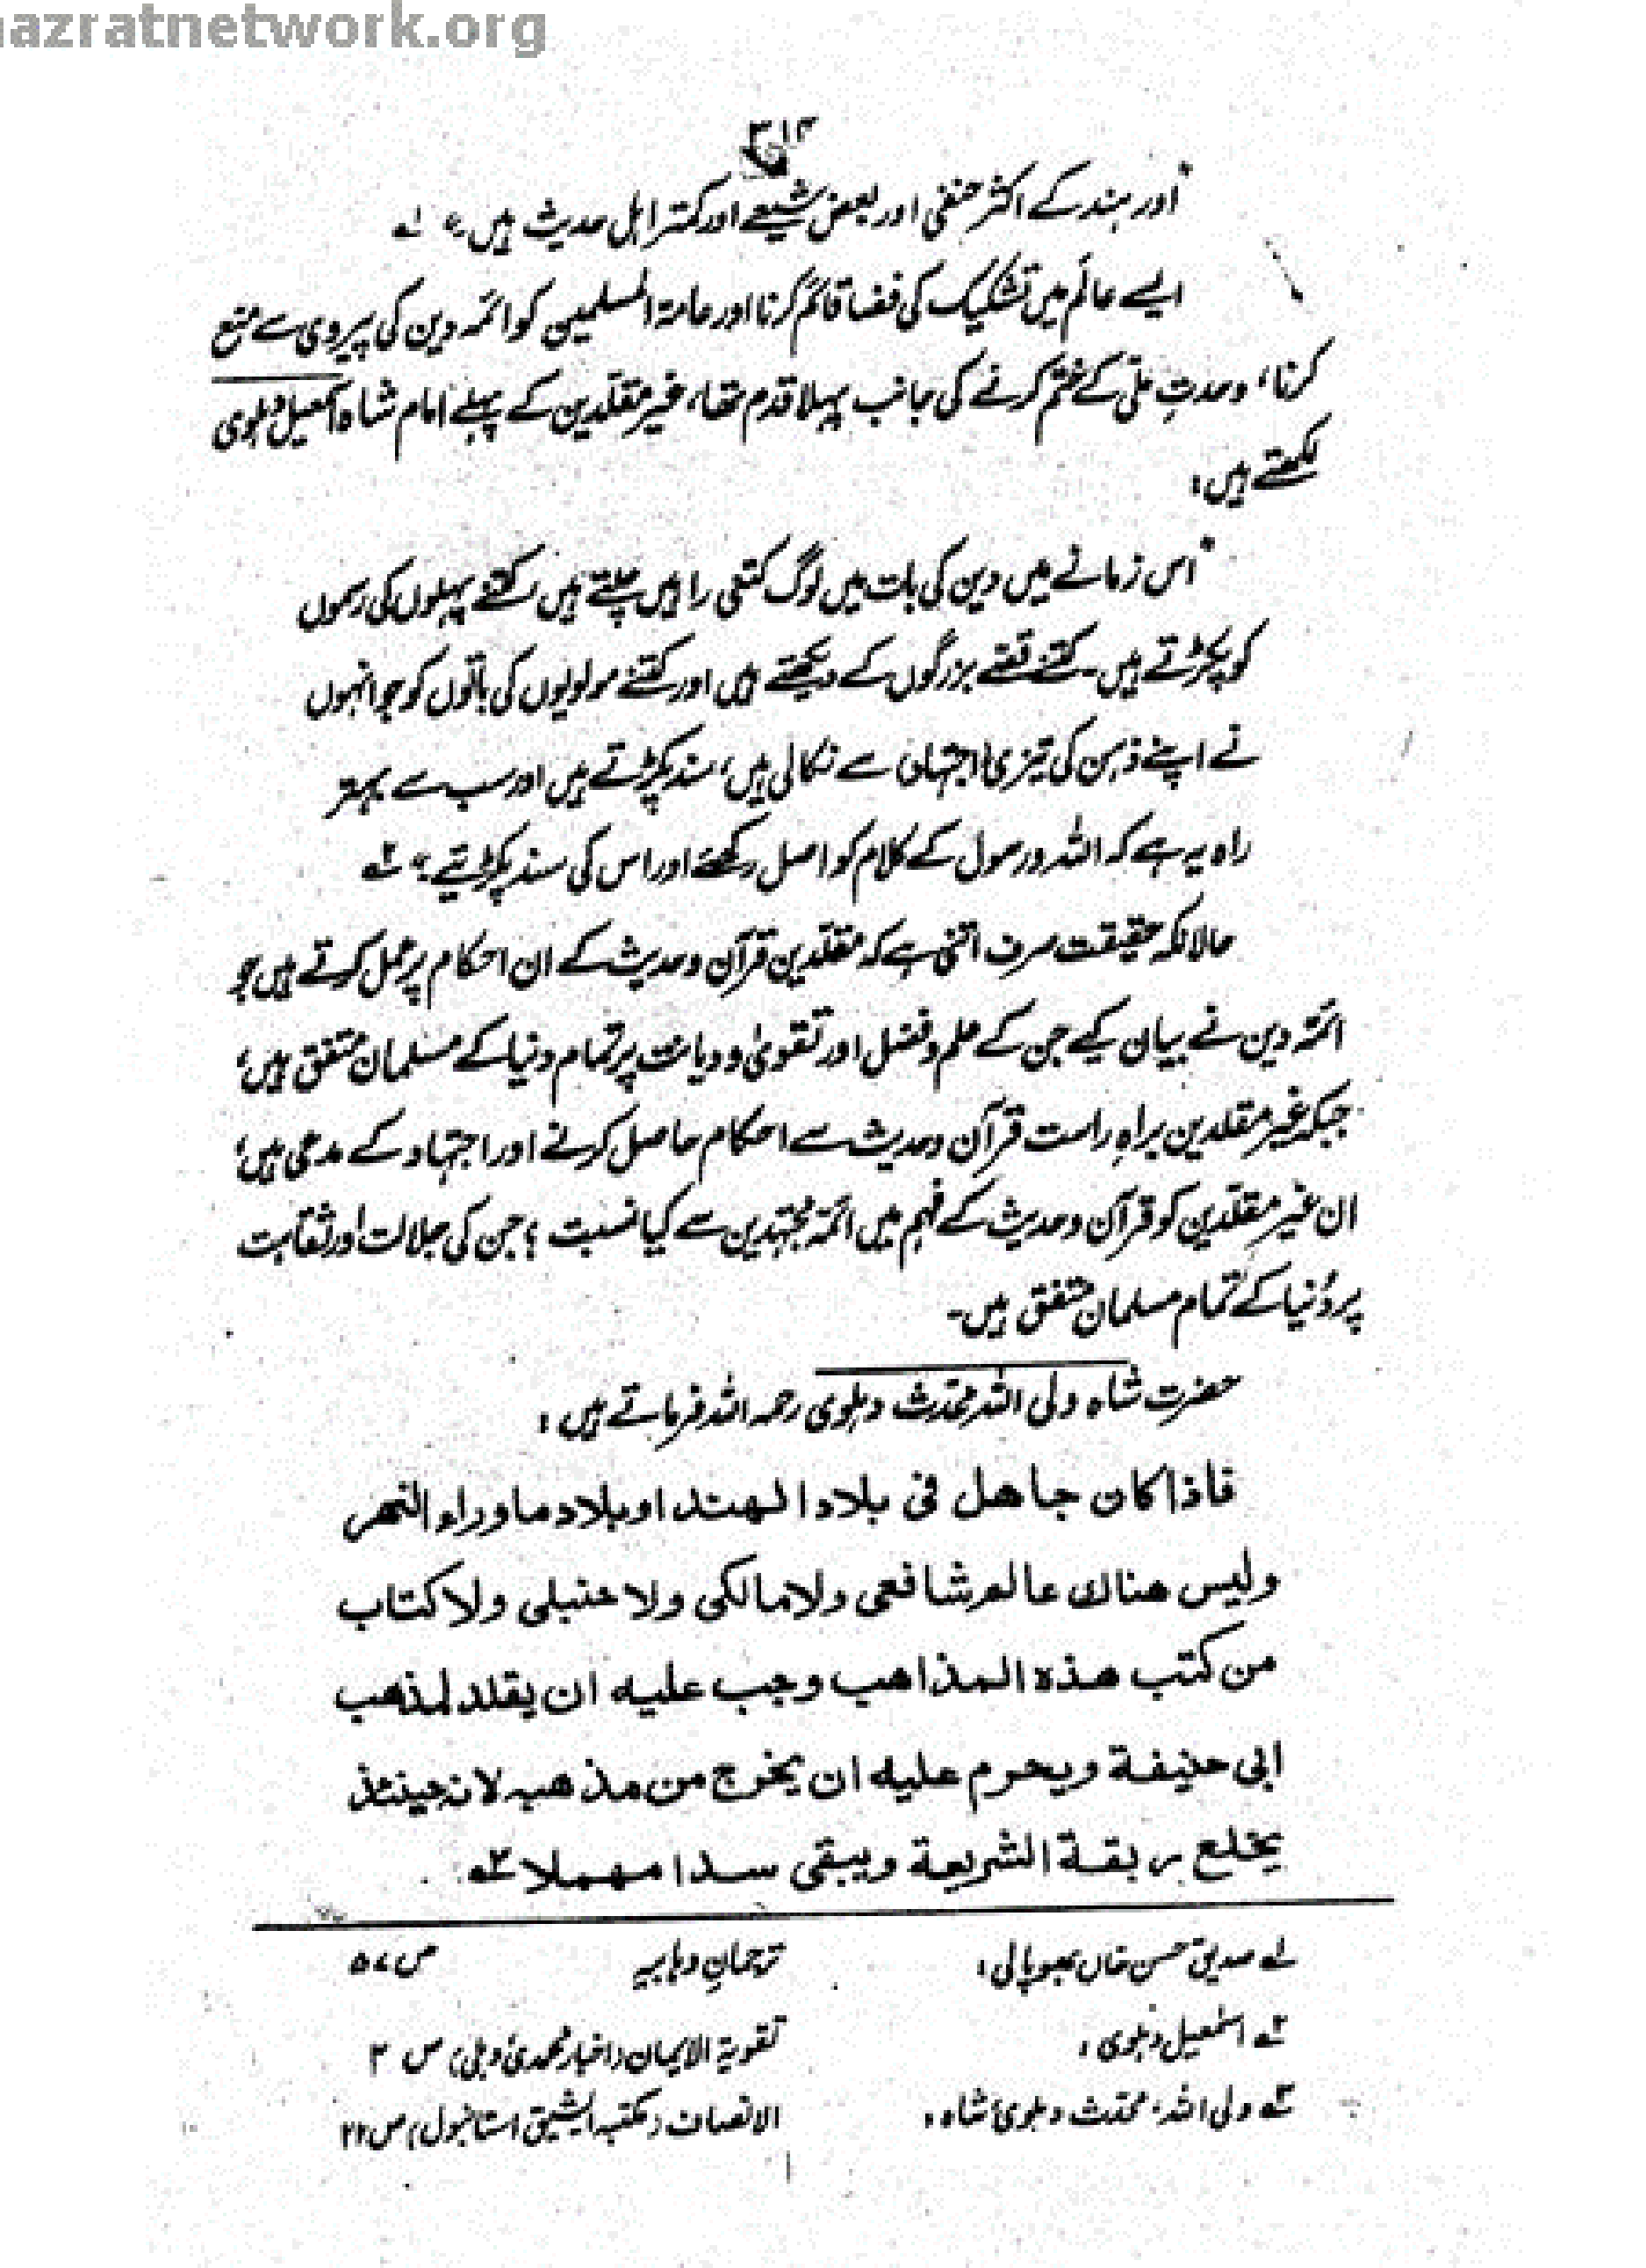 hazratnetwork.org
۳۱۴
"اور ہند کے اکثر حنفی اور بعض شیعے اور کمتر اہل حدیث ہیں" لہ
ایسے عالم میں تشکیک کی فضا قائم کرنا اور عامۃ المسلمین کو ائمہ دین کی پیروی سے منع
کرنا، وحدتِ ملی کے ختم کرنے کی جانب پہلا قدم تھا، غیر مقلدین کے پہلے امام شاہ اسمٰعیل دہلوی
لکھتے ہیں:
"اس زمانے میں دین کی بات میں لوگ کتنی راہیں چلتے ہیں، کتنے پہلوں کی رسموں
کو پکڑتے ہیں۔ کتنے قصے بزرگوں کے دیکھتے ہیں اور کتنے مولویوں کی باتوں کو جو انہوں
نے اپنے ذہن کی تیزی (اجتہاد) سے نکالی ہیں، سند پکڑتے ہیں اور سب سے بہتر
راہ یہ ہے کہ اللہ و رسول کے کلام کو اصل رکھئے اور اس کی سند پکڑئیے" ۲ہ
حالانکہ حقیقت صرف اتنی ہے کہ مقلدین قرآن و حدیث کے ان احکام پر عمل کرتے ہیں جو
ائمہ دین نے بیان کیے جن کے علم و فضل اور تقویٰ و دیانت پر تمام دنیا کے مسلمان متفق ہیں؛
جبکہ غیر مقلدین براہِ راست قرآن و حدیث سے احکام حاصل کرنے اور اجتہاد کے مدعی ہیں؛
ان غیر مقلدین کو قرآن و حدیث کے فہم میں ائمہ مجتہدین سے کیا نسبت؟ جن کی جلالت اور ثقاہت
پر دُنیا کے تمام مسلمان متفق ہیں۔
حضرت شاہ ولی اللہ محدث دہلوی رحمہ اللہ فرماتے ہیں:
فاذا کان جاهل فی بلاد الهند او بلاد ماوراء النهر
ولیس هناك عالم شافعی ولا مالکی ولا حنبلی ولا کتاب
من کتب هذه المذاهب وجب علیه ان یقلد لمذهب
ابی حنیفة ویحرم علیه ان یخرج من مذهبه لانه حینئذ
یخلع ربقة الشریعة ویبقی سدا مهملا ۳ہ
لہ صدیق حسن خاں بھوپالی: ترجمانِ وہابیہ ص ۵۷
۲ہ اسمٰعیل دہلوی: تقویۃ الایمان (اخبار محمدی دہلی) ص ۳
۳ہ ولی اللہ، محدث دہلوی شاہ: الانصاف (مکتبہ ایشیق استانبول) ص ۲۲